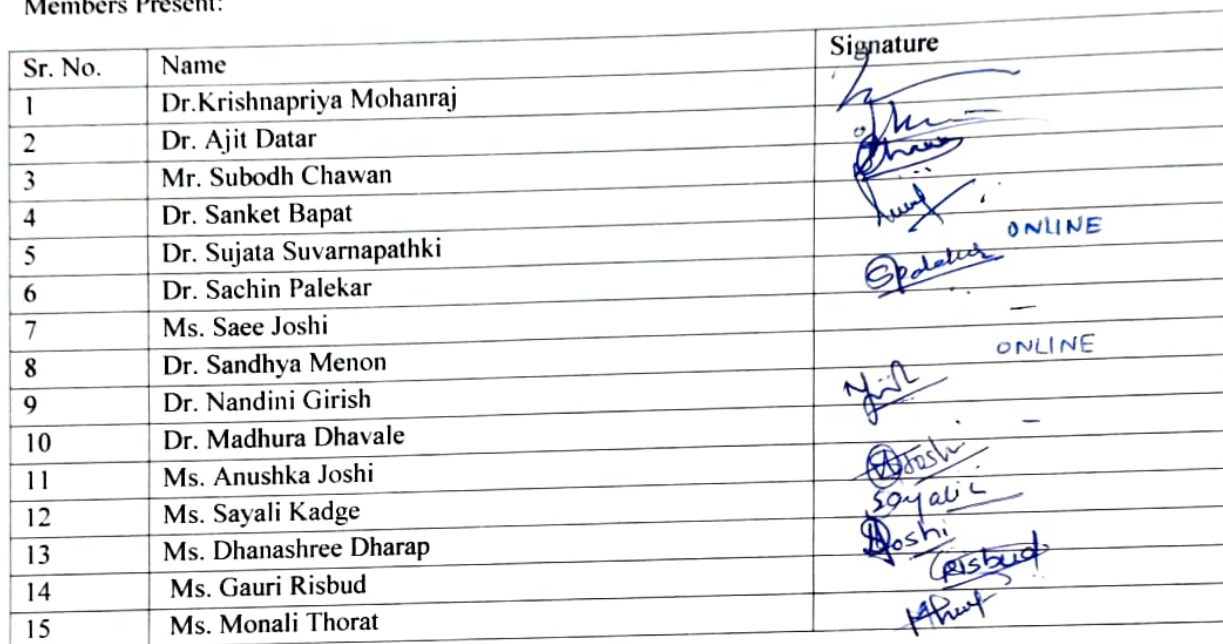 Members Present:
Sr. No. Name Signature
1 Dr.Krishnapriya Mohanraj
2 Dr. Ajit Datar
3 Mr. Subodh Chawan
4 Dr. Sanket Bapat
5 Dr. Sujata Suvarnapathki ONLINE
6 Dr. Sachin Palekar SPalekar
7 Ms. Saee Joshi -
8 Dr. Sandhya Menon ONLINE
9 Dr. Nandini Girish
10 Dr. Madhura Dhavale -
11 Ms. Anushka Joshi AJoshi
12 Ms. Sayali Kadge Sayali
13 Ms. Dhanashree Dharap Joshi
14 Ms. Gauri Risbud Risbud
15 Ms. Monali Thorat